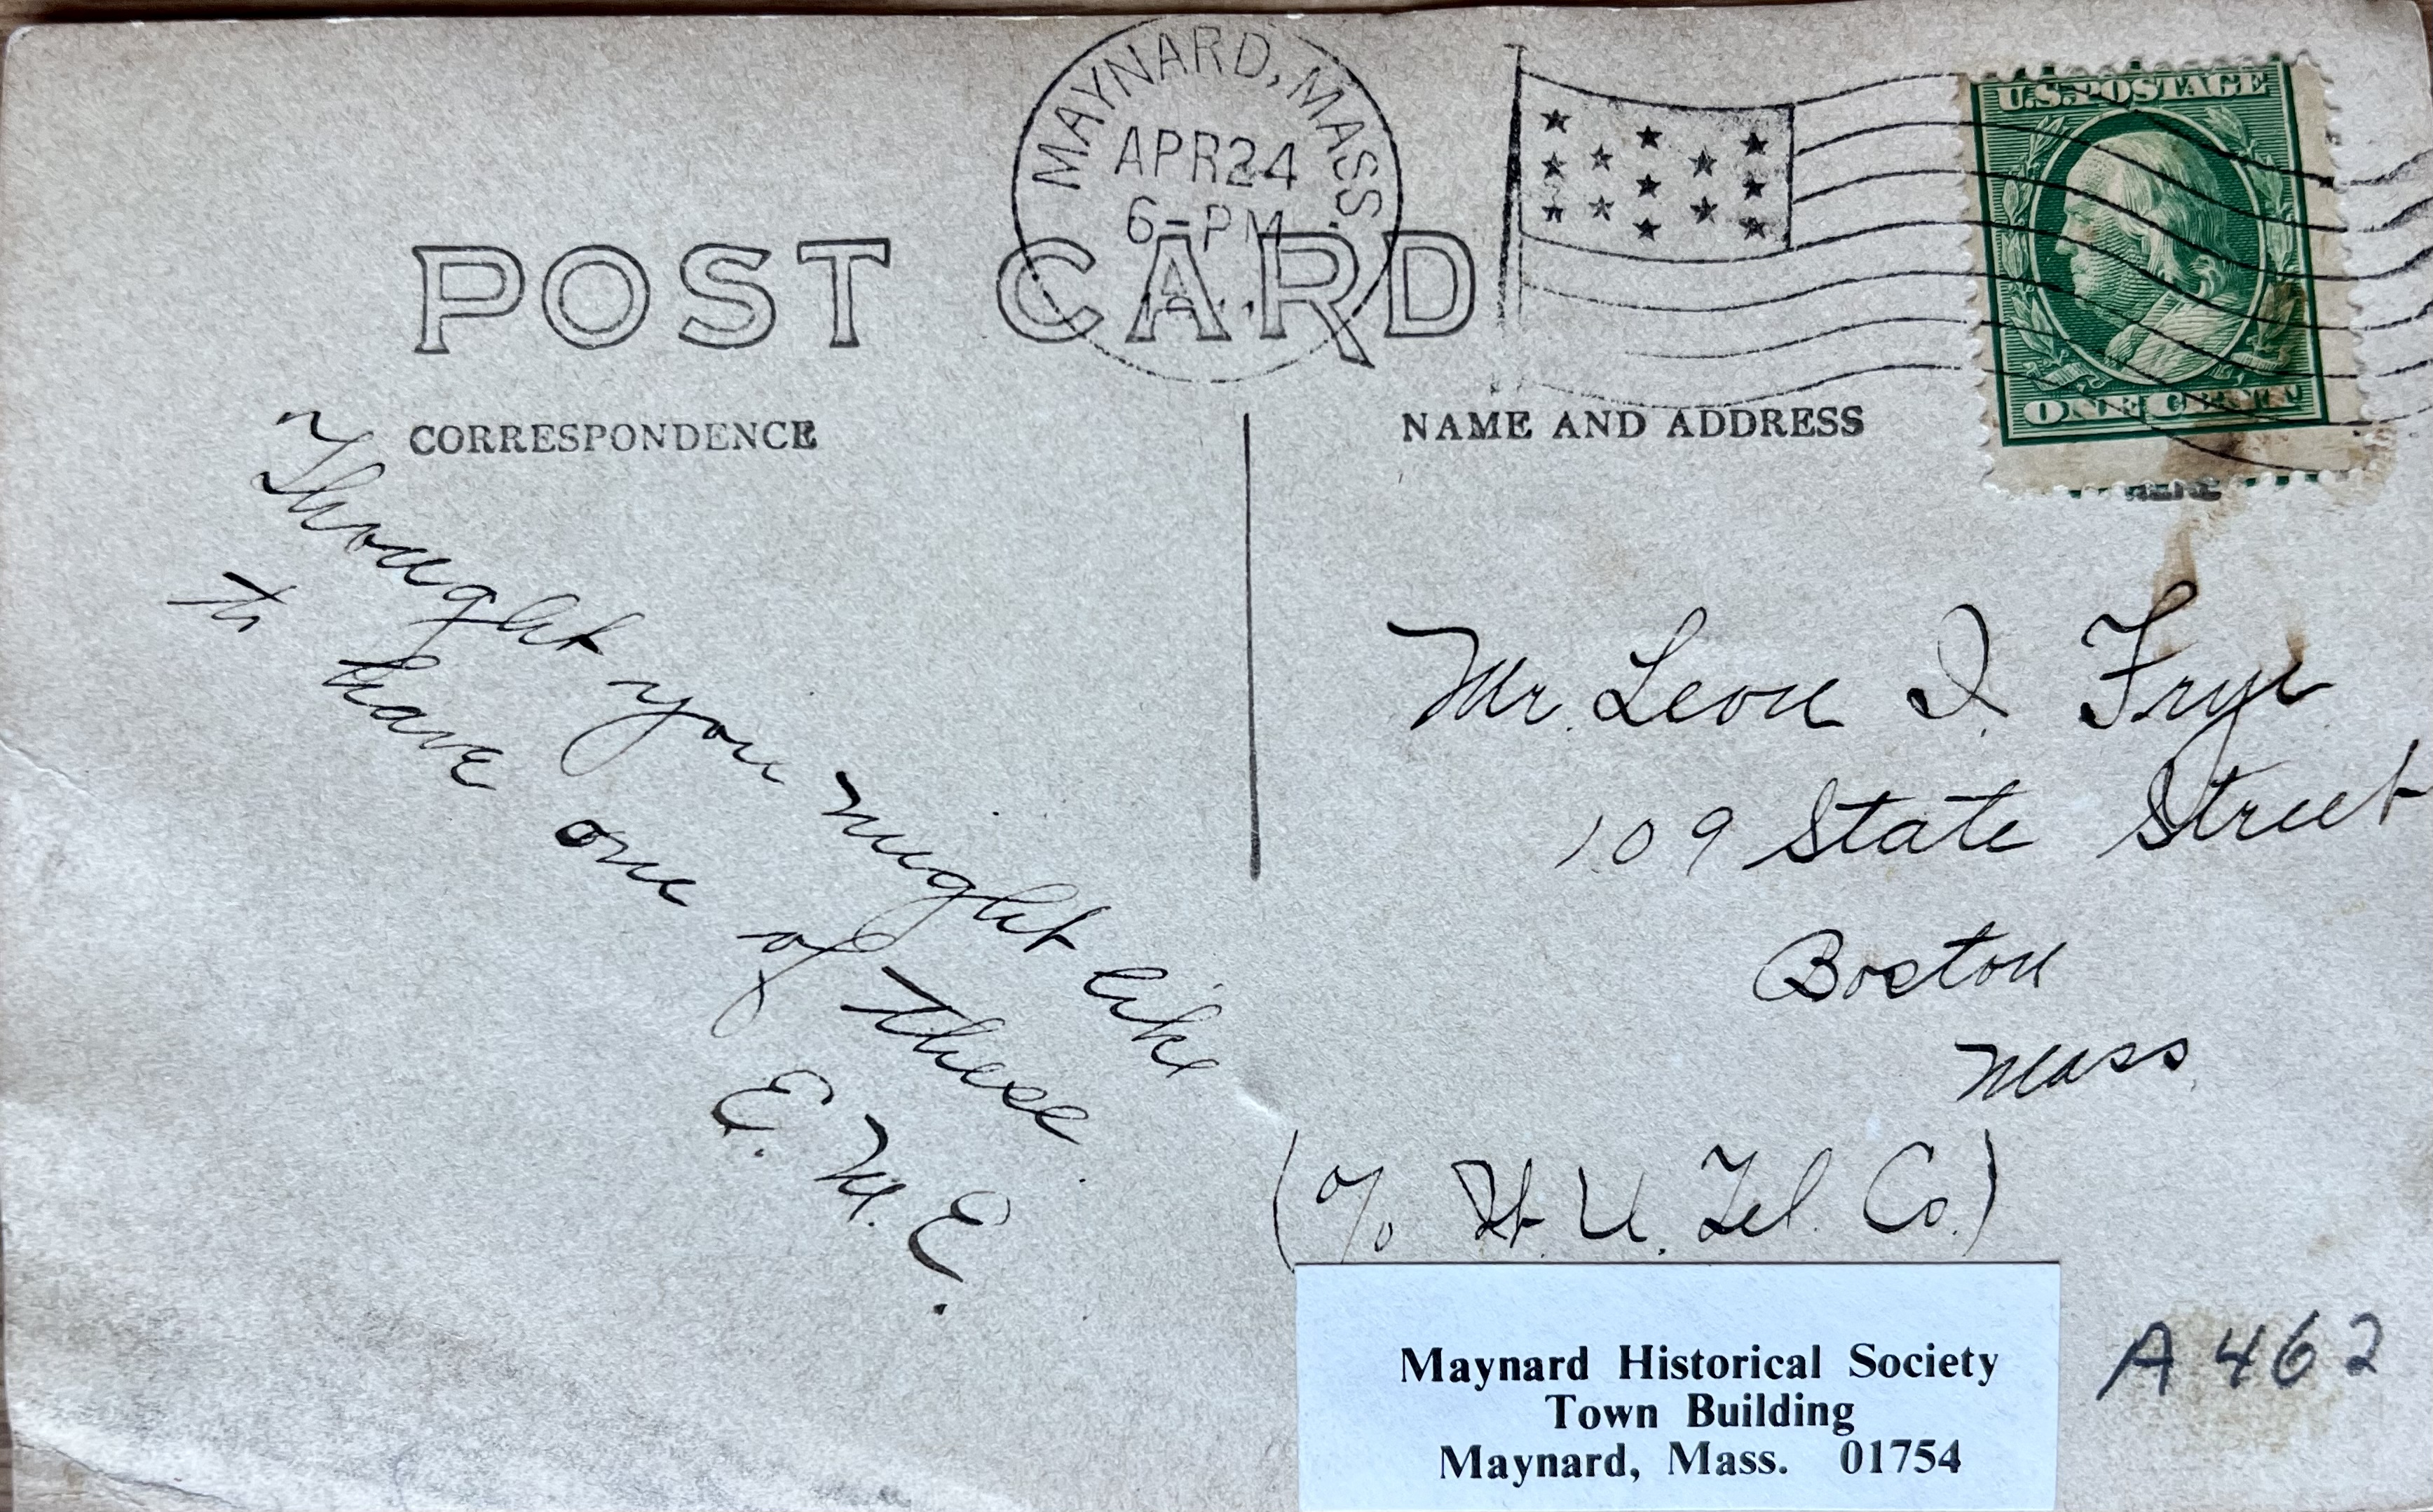 MAYNARD, MASS.
APR 24
6-PM
U.S. POSTAGE
ONE CENT
POST CARD
CORRESPONDENCE
NAME AND ADDRESS
Thought you might like
to have one of these.
E. M. E.
Mr. Leon I. Frye
109 State Street
Boston
Mass.
(c/o W. U. Tel. Co.)
Maynard Historical Society
Town Building
Maynard, Mass. 01754
A 462